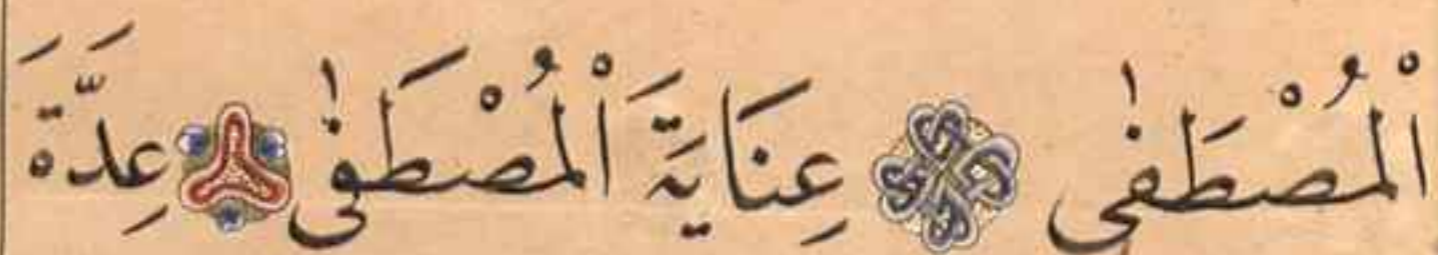 الْمُصْطَفٰى عِنَايَةَ الْمُصْطَفٰى عِدَّةَ